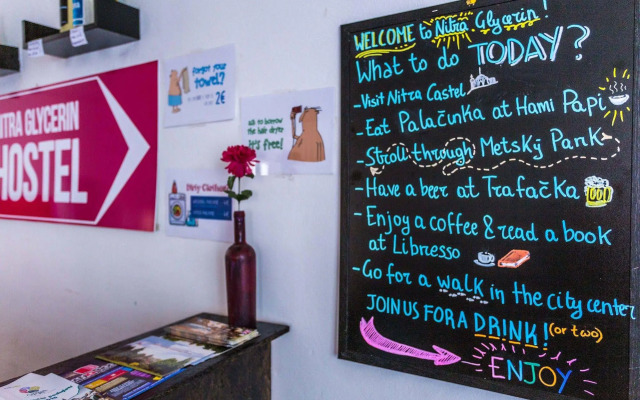 NITRA GLYCERIN
HOSTEL
Forgot your
towel?
2€
ask to borrow
the hair dryer
it's free!
Dirty Clothes?
WELCOME to Nitra Glycerin!
What to do TODAY?
-Visit Nitra Castel
-Eat Palačinka at Hami Papi
-Stroll through Metský Park
-Have a beer at Trafačka
-Enjoy a coffee & read a book
at Libresso
-Go for a walk in the city center
JOIN US FOR A DRINK! (or two)
ENJOY